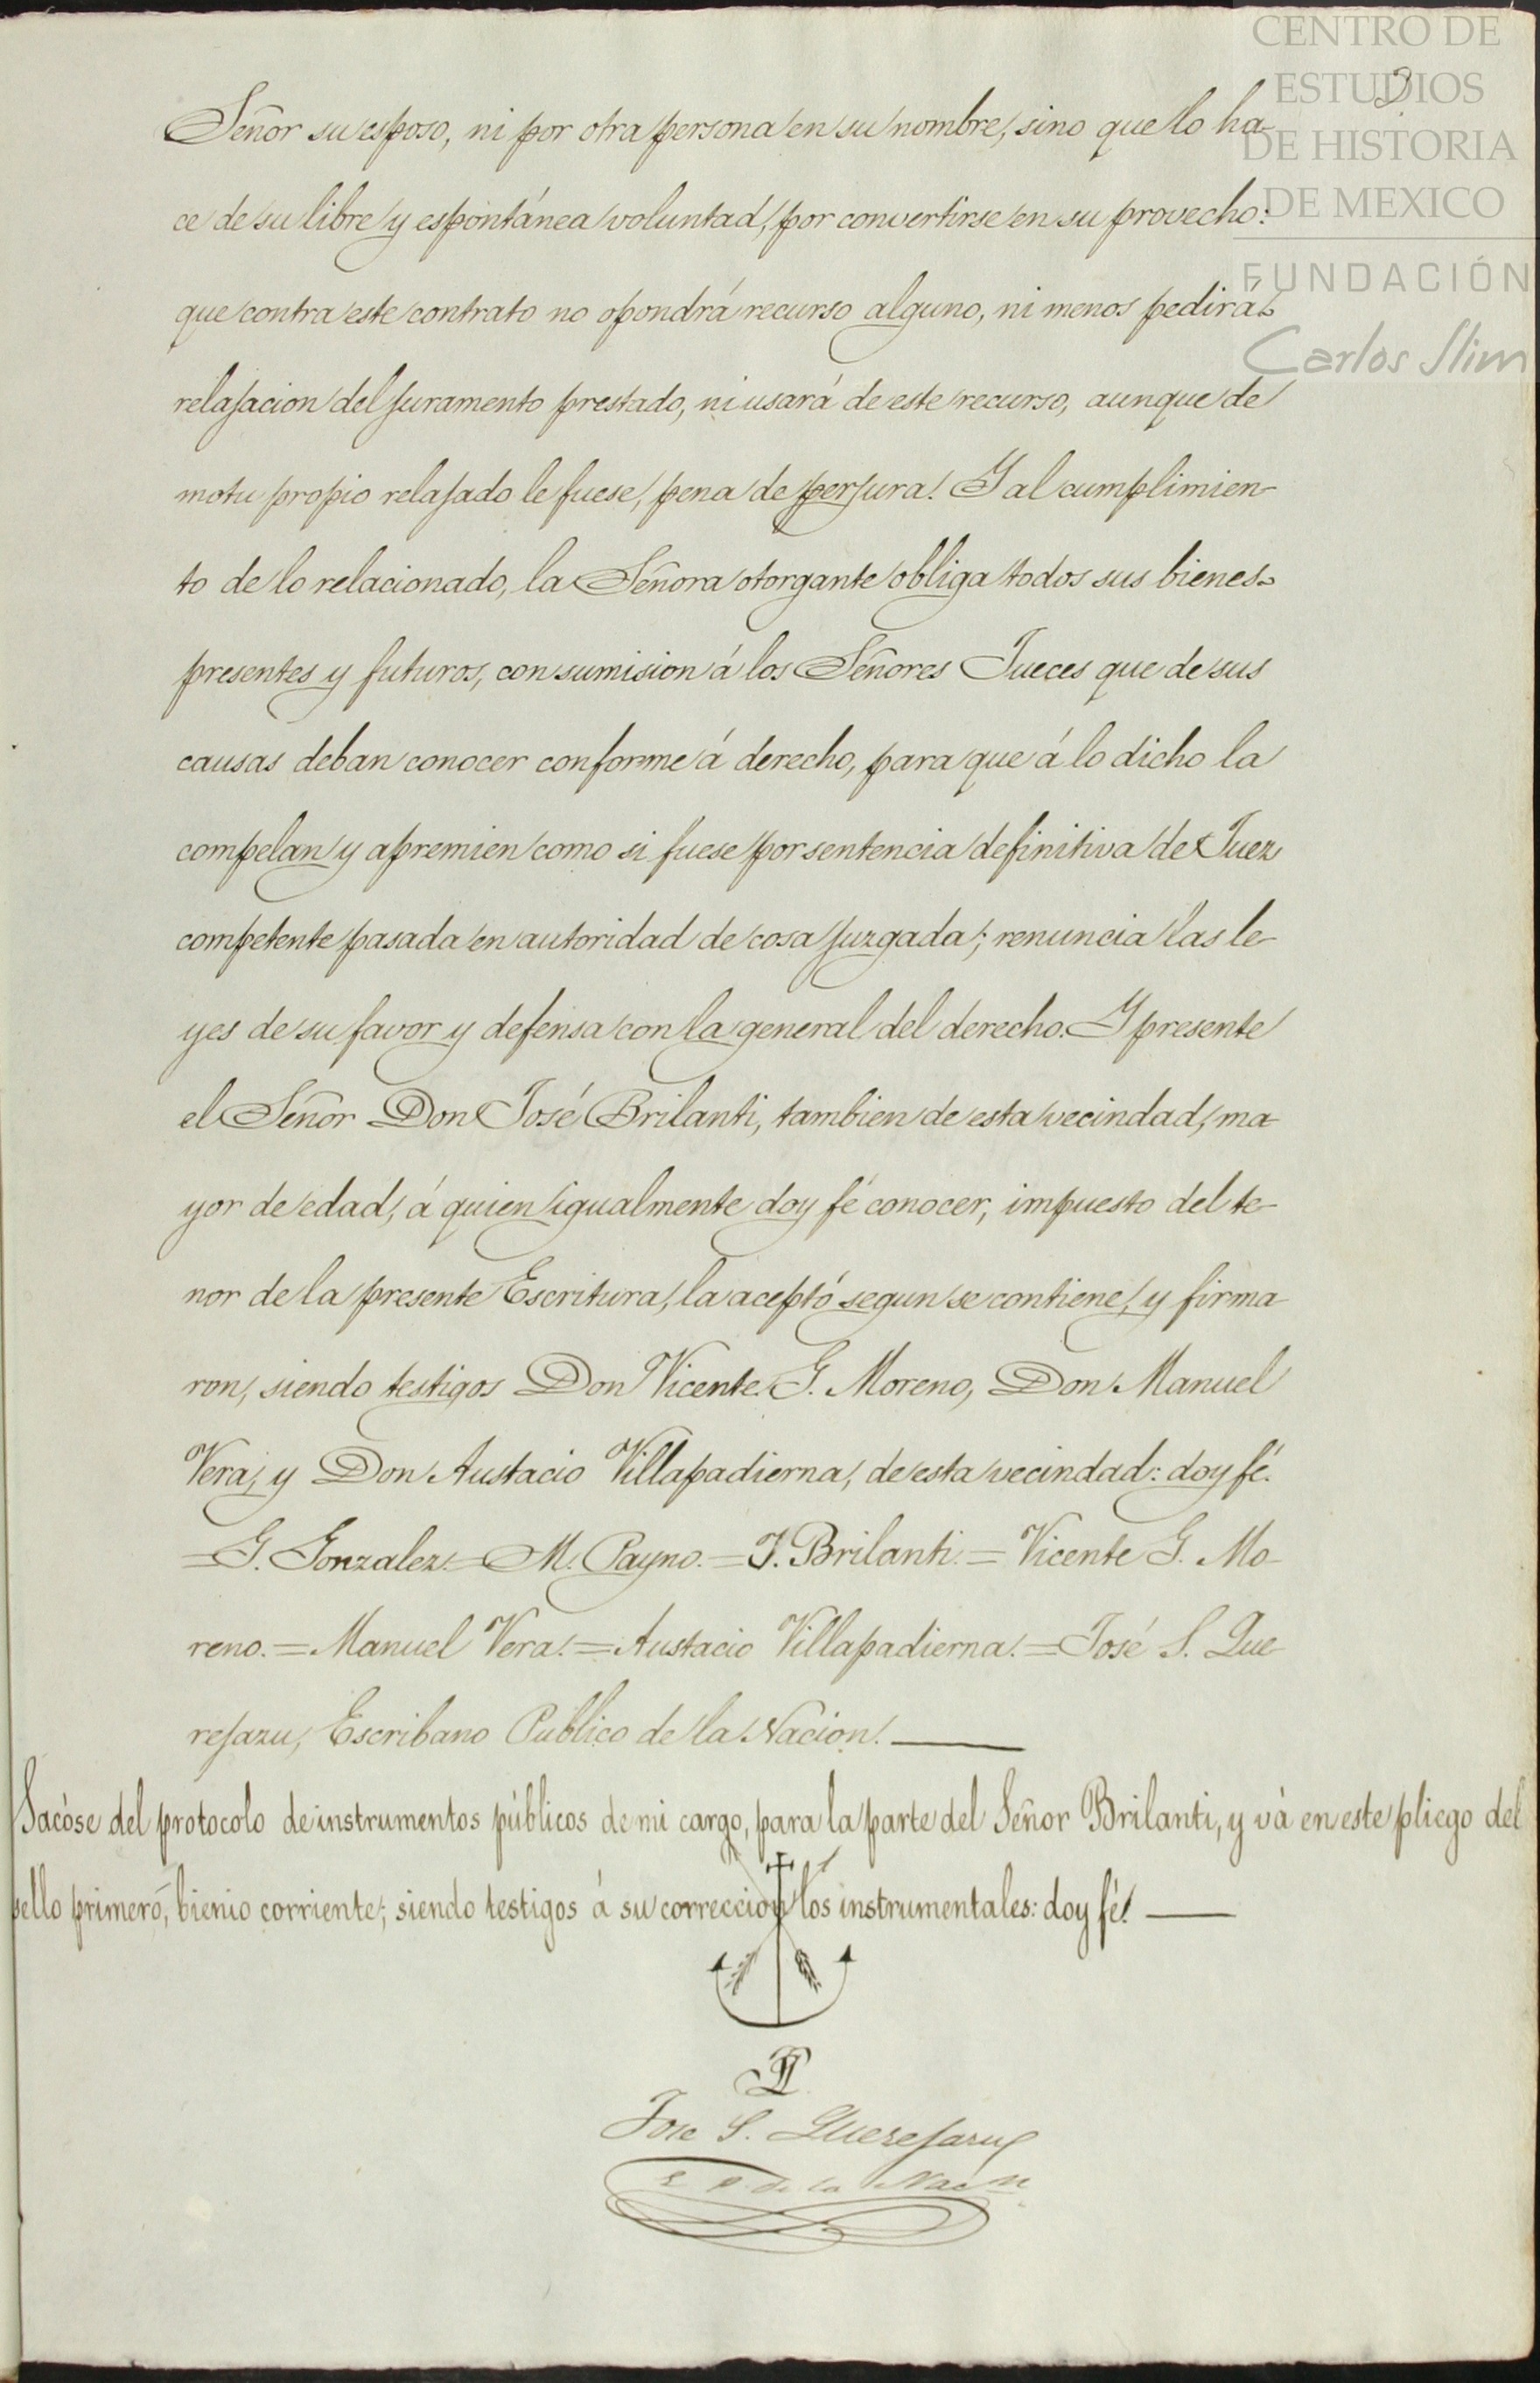 CENTRO DE
ESTUDIOS
DE HISTORIA
DE MEXICO
FUNDACIÓN
Carlos Slim
Señor su esposo, ni por otra persona en su nombre, sino que lo ha-
ce de su libre y espontánea voluntad, por convertirse en su provecho:
que contra este contrato no opondrá recurso alguno, ni menos pedirá
relajacion del juramento prestado, ni usará de este recurso, aunque de
motu propio relajado le fuese, pena de perjura. Y al cumplimien-
to de lo relacionado, la Señora otorgante obliga todos sus bienes
presentes y futuros, con sumision á los Señores Jueces que de sus
causas deban conocer conforme á derecho, para que á lo dicho la
compelan y apremien como si fuese por sentencia definitiva de Juez
competente pasada en autoridad de cosa juzgada; renuncia las le-
yes de su favor y defensa con la general del derecho. Y presente
el Señor Don José Brilanti, tambien de esta vecindad, ma-
yor de edad, á quien igualmente doy fé conocer, impuesto del te-
nor de la presente Escritura, la aceptó segun se contiene, y firma-
ron, siendo testigos Don Vicente G. Moreno, Don Manuel
Vera, y Don Austacio Villapadierna, de esta vecindad: doy fé.
=G. Gonzalez.=M. Payno.=J. Brilanti.=Vicente G. Mo-
reno.=Manuel Vera.=Austacio Villapadierna.=José S. Que-
rejazu, Escribano Publico de la Nacion.
Sacóse del protocolo de instrumentos públicos de mi cargo, para la parte del Señor Brilanti, y vá en este pliego del
sello primero, bienio corriente; siendo testigos á su correccion los instrumentales: doy fé.
Jose S. Querejazu
E P. de la Nacn